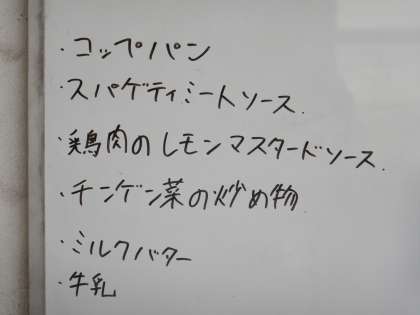 ・コッペパン
・スパゲティミートソース.
・鶏肉のレモンマスタードソース.
・チンゲン菜の炒め物.
・ミルクバター
・牛乳